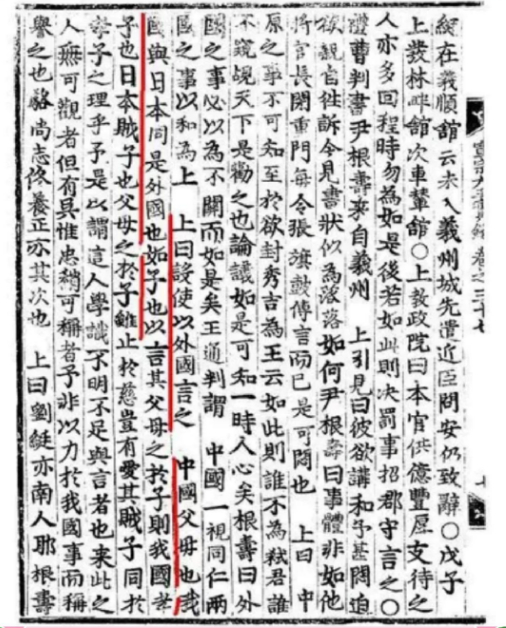 綎在義順館云未入義州城先遣近臣問安仍致辭○戊子
上發林畔館次車輦館○上敎政院曰本官供億豐厚支待之
人亦多回程時勿爲如是後若如此則決罰事招郡守言之○
禮曹判書尹根壽來自義州 上引見曰彼欲講和予甚悶迫
欲親自往訴今見書狀似爲落落如何尹根壽曰事體非如他
將官長閉重門每令張旗鼓傳言而已是可悶也 上曰 中
原之事不可知至於欲封秀吉爲王云如此則誰不爲弑君誰
不窺覘天下是勸之也論議如是可知一時人心矣根壽曰外
國之事必以爲不關而如是矣王通判謂 中國一視同仁兩
國之事以和爲上 上曰設使以外國言之 中國父母也我
國與日本同是外國也如子也以言其父母之於子則我國孝
子也日本賊子也父母之於子雖止於慈豈有愛其賊子同於
孝子之理乎予是以謂這人學識不明不足與言者也來此之
人無可觀者但有吳惟忠稍可稱者予非以力於我國事而稱
譽之也駱尙志佟養正亦其次也 上曰劉綎亦南人耶根壽
卷之三十七